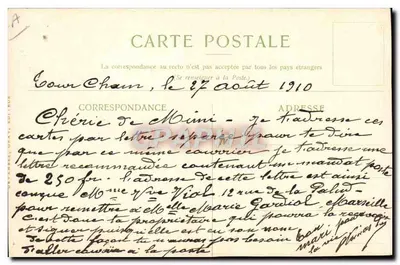 CARTE POSTALE
La correspondance au recto n'est pas acceptée par tous les pays étrangers
(Se renseigner à la Poste)
Tour Cham, le 27 août 1910
CORRESPONDANCE
ADRESSE
Chérie de Mimi - Je t'adresse ces
cartes par lettre séparée pour te dire
que par ce même courrier je t'adresse une
lettre recommandée contenant un mandat poste
de 250 frs. l'adresse de cette lettre est ainsi
conçue Mme Vve Viol 12 rue de la Palud
pour remettre à Melle Marie Gardiol Marseille
C'est donc la propriétaire que pourra la recevoir
et signer puisqu'elle est en son nom
de cette façon tu n'auras pas besoin
d'aller à la poste
ton mari pour
la vie